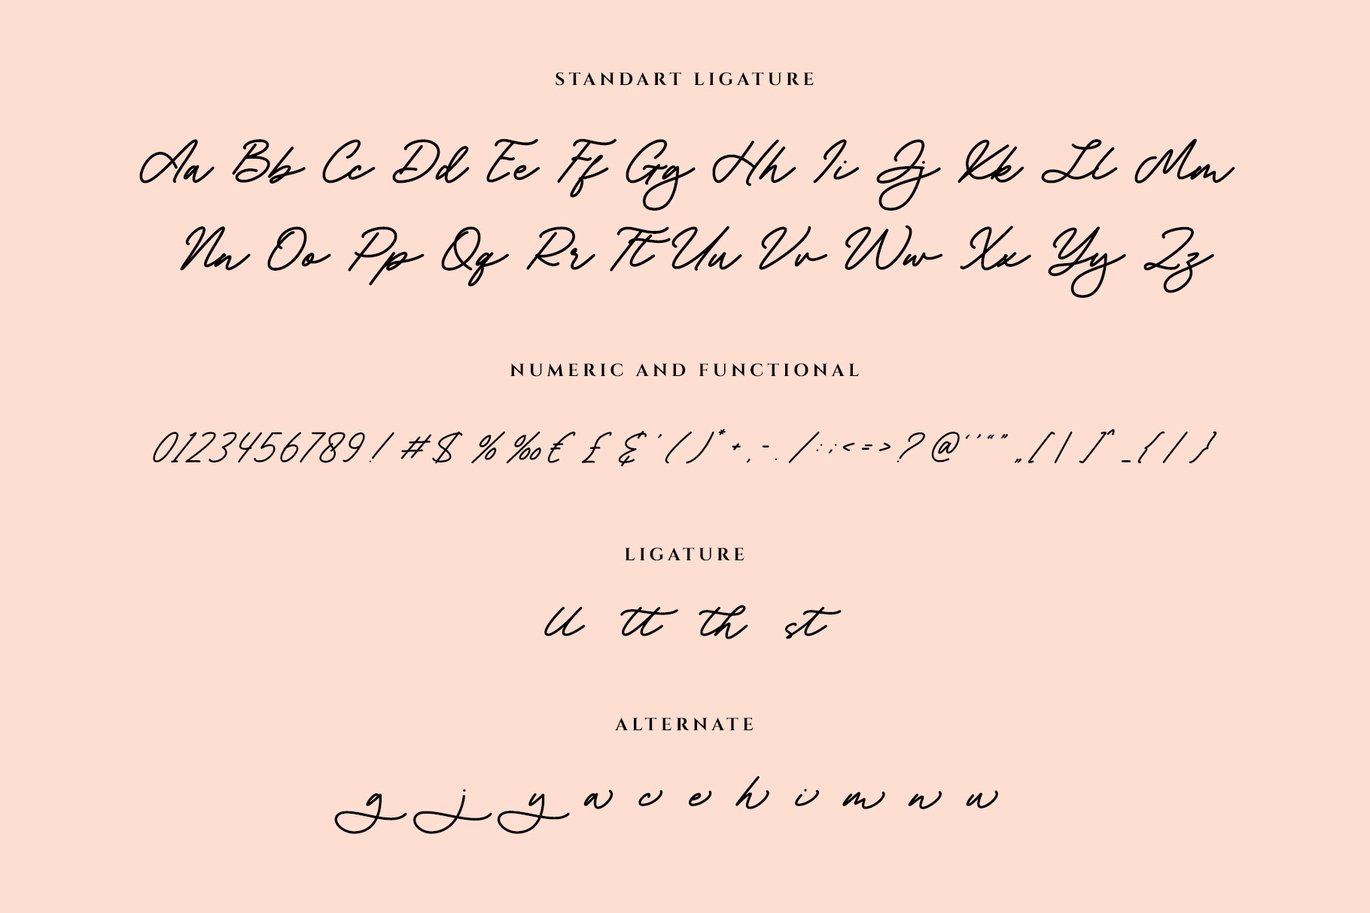 STANDART LIGATURE
Aa Bb Cc Dd Ee Ff Gg Hh Ii Jj Kk Ll Mm
Nn Oo Pp Qq Rr Tt Uu Vv Ww Xx Yy Zz
NUMERIC AND FUNCTIONAL
0123456789! #$ %‰€ £ & ' ( )*+,-. /:;<=>? @‘’“”„[ | ]^_{ | }
LIGATURE
ll tt th st
ALTERNATE
g j y a c e h i m n u